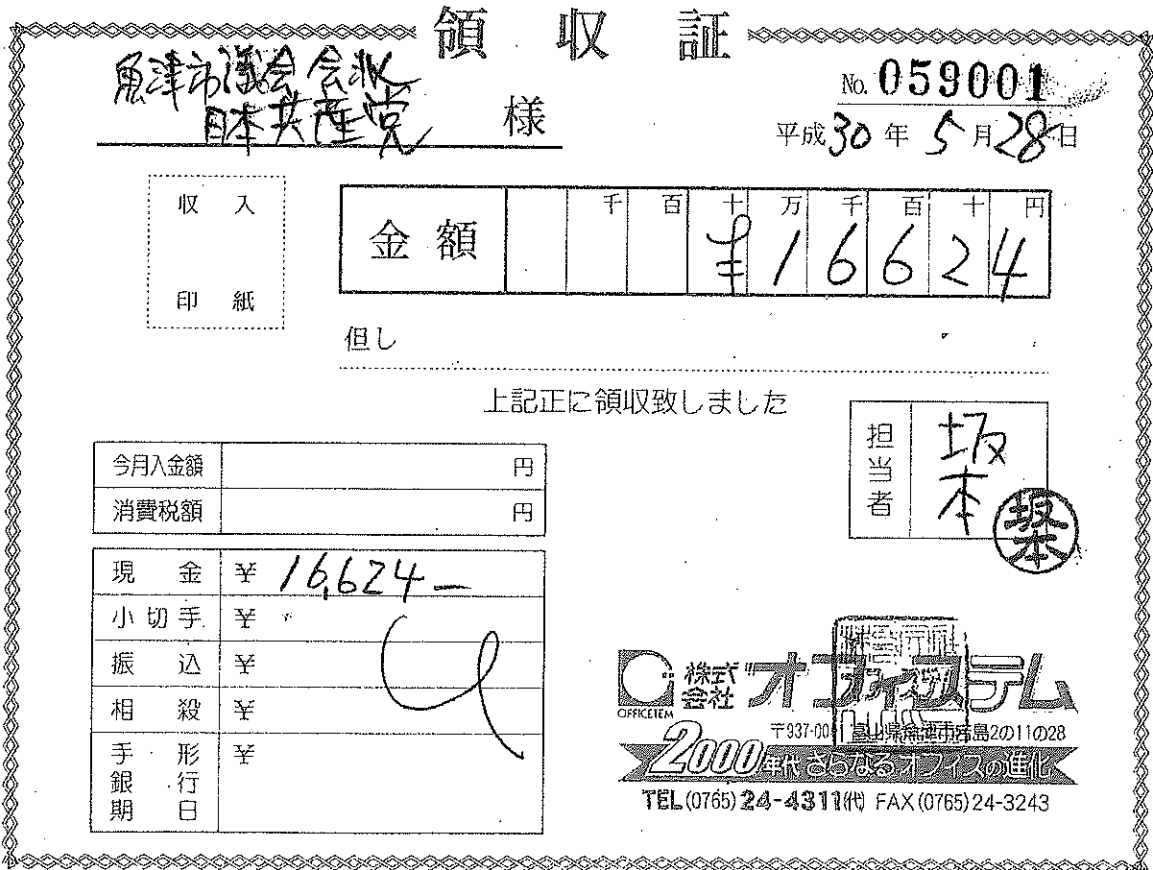 領収証
魚津市議会 会派
日本共産党 様
No. 059001
平成30年5月28日
収入
印紙
金額 千 百 十 万 千 百 十 円
¥16624
但し
上記正に領収致しました
担当者 坂本
坂本
今月入金額 円
消費税額 円
現金 ¥ 16,624—
小切手 ¥
振込 ¥
相殺 ¥
手形 ¥
銀行
期日
OFFICETEM
株式会社 オフィステム
富山県魚津市 島2の11の28
2000年代 さらなるオフィスの進化
TEL(0765)24-4311(代) FAX(0765)24-3243